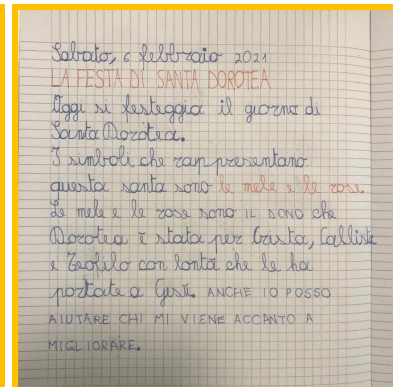 Sabato, 6 febbraio 2021
LA FESTA DI SANTA DOROTEA
Oggi si festeggia il giorno di
Santa Dorotea.
I simboli che rappresentano
questa santa sono le mele e le rose.
Le mele e le rose sono IL DONO che
Dorotea è stata per Crista, Callista
e Teofilo con bontà che le ha
portate a Gesù. ANCHE IO POSSO
AIUTARE CHI MI VIENE ACCANTO A
MIGLIORARE.